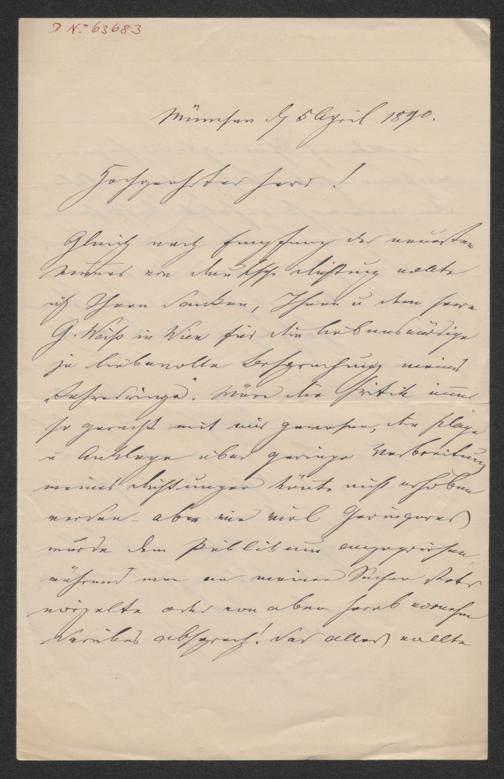 J. N. 63683
München d 5 April 1890.
Hochgeehrter Herr!
Gleich nach Empfang der neuesten
Numer von deutsche Dichtung wollte
ich Ihnen danken, Ihnen u dem Herrn
G. Weiß in Wien für die liebenswürdige
ja liebevolle Besprechung meiner
"Jahresringe". Wäre die Kritik immer
so gerecht mit mir gewesen, die Klage
u Anklage über geringe Verbreitung
meiner Dichtungen könte nicht erhoben
werden – aber wie viel Geringeres
wurde dem Publikum angepriesen,
während man an meinen Sachen stets
nörgelte oder von oben herab vornehm
darüber absprach! Das alles wollte